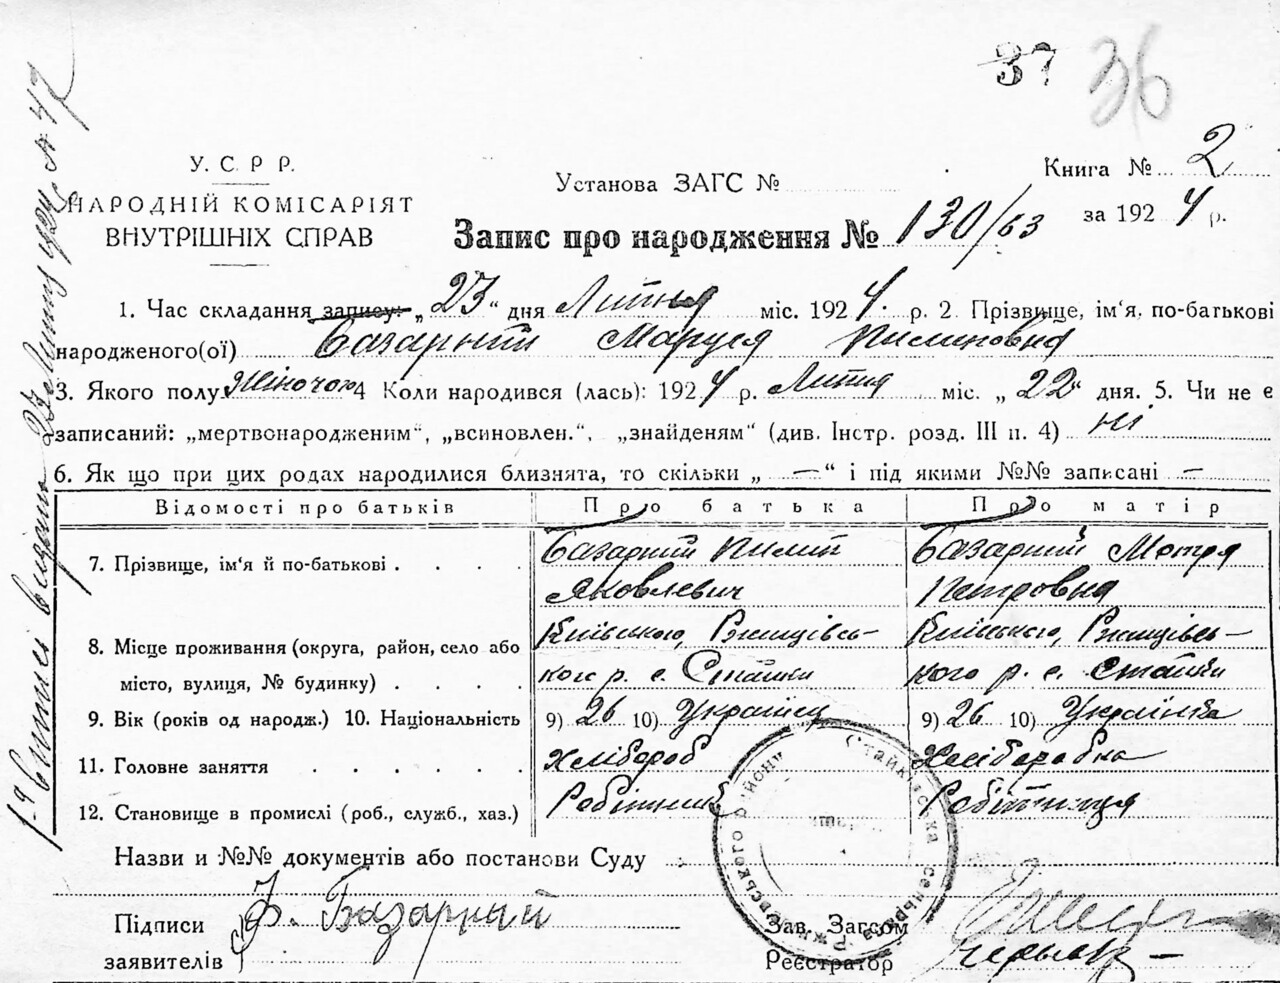 37 36
У. С. Р Р.
НАРОДНІЙ КОМІСАРІЯТ
ВНУТРІШНІХ СПРАВ
Установа ЗАГС №
Книга № 2
за 1924 р.
Запис про народження № 130/63
1. Час складання запису: „23“ дня Лютня міс. 1924 р. 2 Прізвище, ім‘я, по-батькові
народженого(ої) Базарний Маруся Пилиповна
3. Якого полу Жіночого 4 Коли народився (лась): 1924 р. Лютня міс. „22“ дня. 5. Чи не є
записаний: „мертвонародженим“, „всиновлен.“, „знайденям“ (див. Інстр. розд. III п. 4) ні
6. Як що при цих родах народилися близнята, то скільки „ — “ і під якими №№ записані —
Відомості про батьків Про батька Про матір
7. Прізвище, ім‘я й по-батькові . . . . Базарний Пилип Яковлевич Базарний Мотря Петровна
8. Місце проживання (округа, район, село або місто, вулиця, № будинку) . . . . Київською, Ржищівського р. с. Стайки Київською, Ржищівського р. с. Стайки
9. Вік (років од народж.) 10. Національність 9) 26 10) Украінец 9) 26 10) Украінка
11. Головне заняття . . . . . . Хлібороб Хліборобка
12. Становище в промислі (роб., служб., хаз.) Робітник Робітниця
Назви и №№ документів або постанови Суду
Підписи
заявителів
Базарный
Зав. Загсом
Реєстратор
Стайківська сельрада Ржищівського району